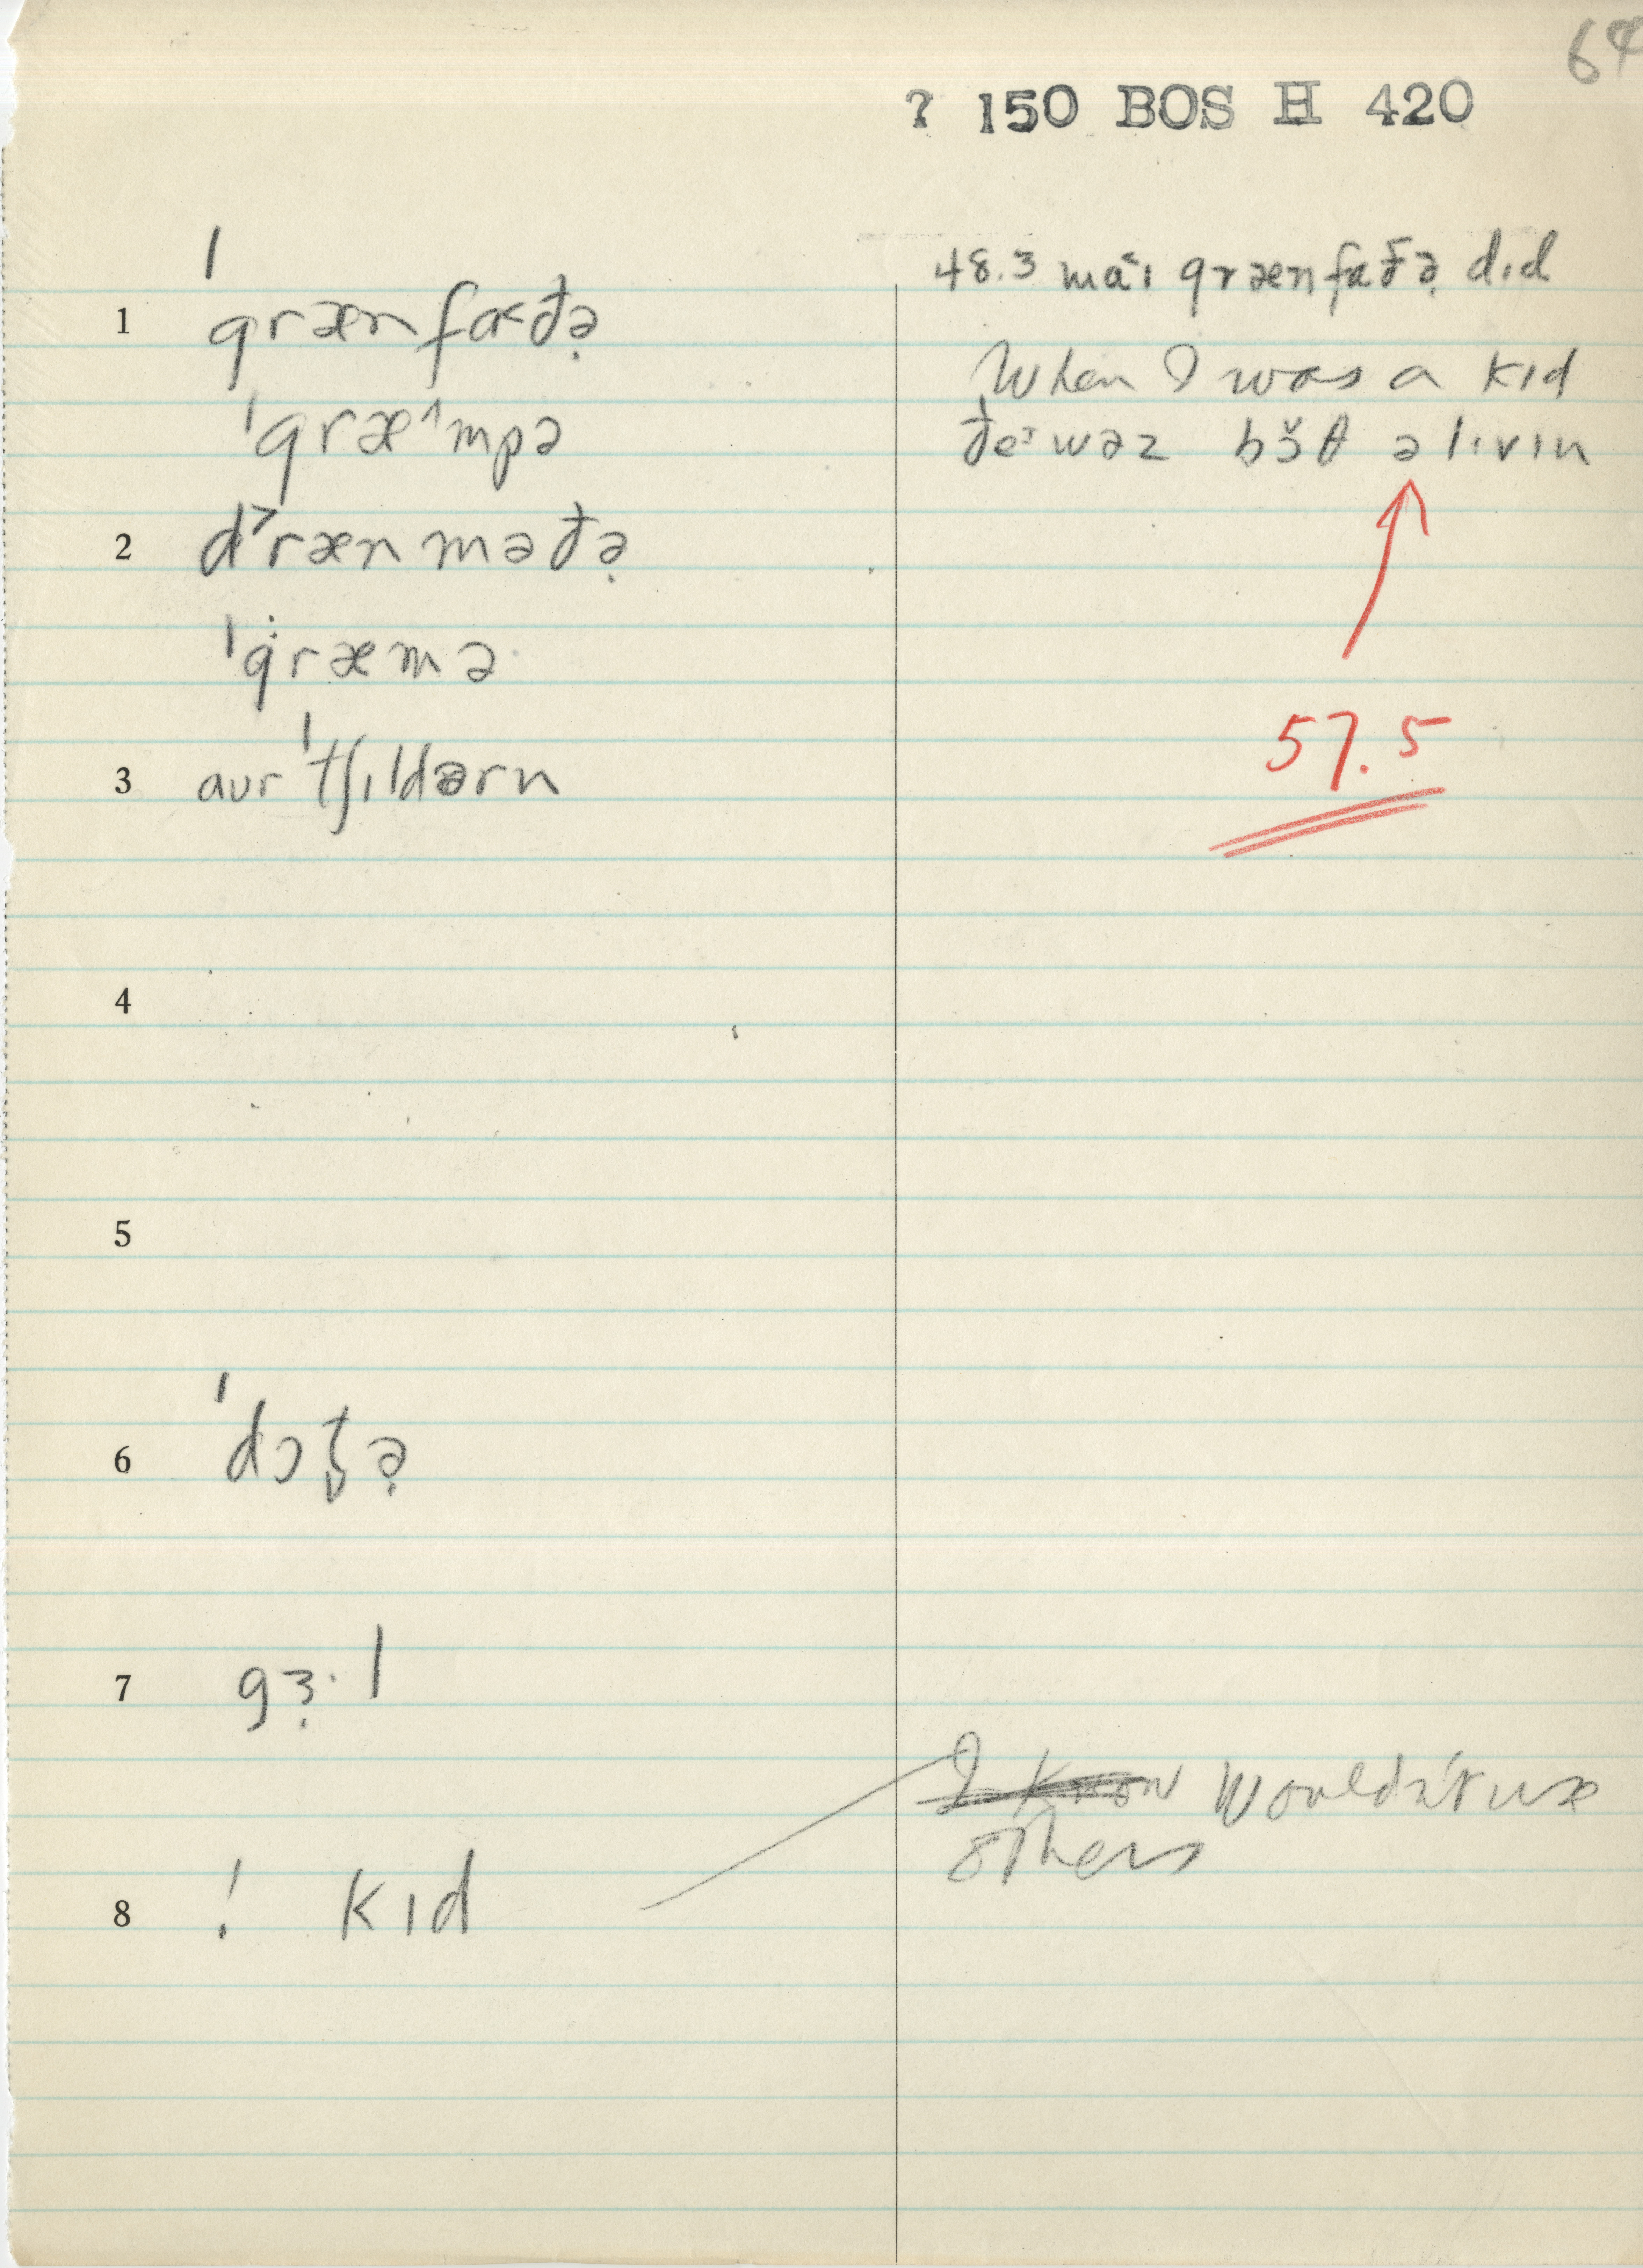 64
? 150 BOS H 420
1 ˈgrænfɑ˂ðə̣
ˈgræ˄mpə
2 d˃rænməðə̣
ˈġræmə
3 aʊr ˈtʃɪldərn
4
5
6 ˈdɔt̬ə̣
7 gɜ̣·l
8 ! kɪd
48.3 ma˂ɪ grænfɑðə̣ dɪd
When I was a kid
ðe˃ wəz bɔ̆θ əlɪvɪn
57.5
I know Wouldn't use
others